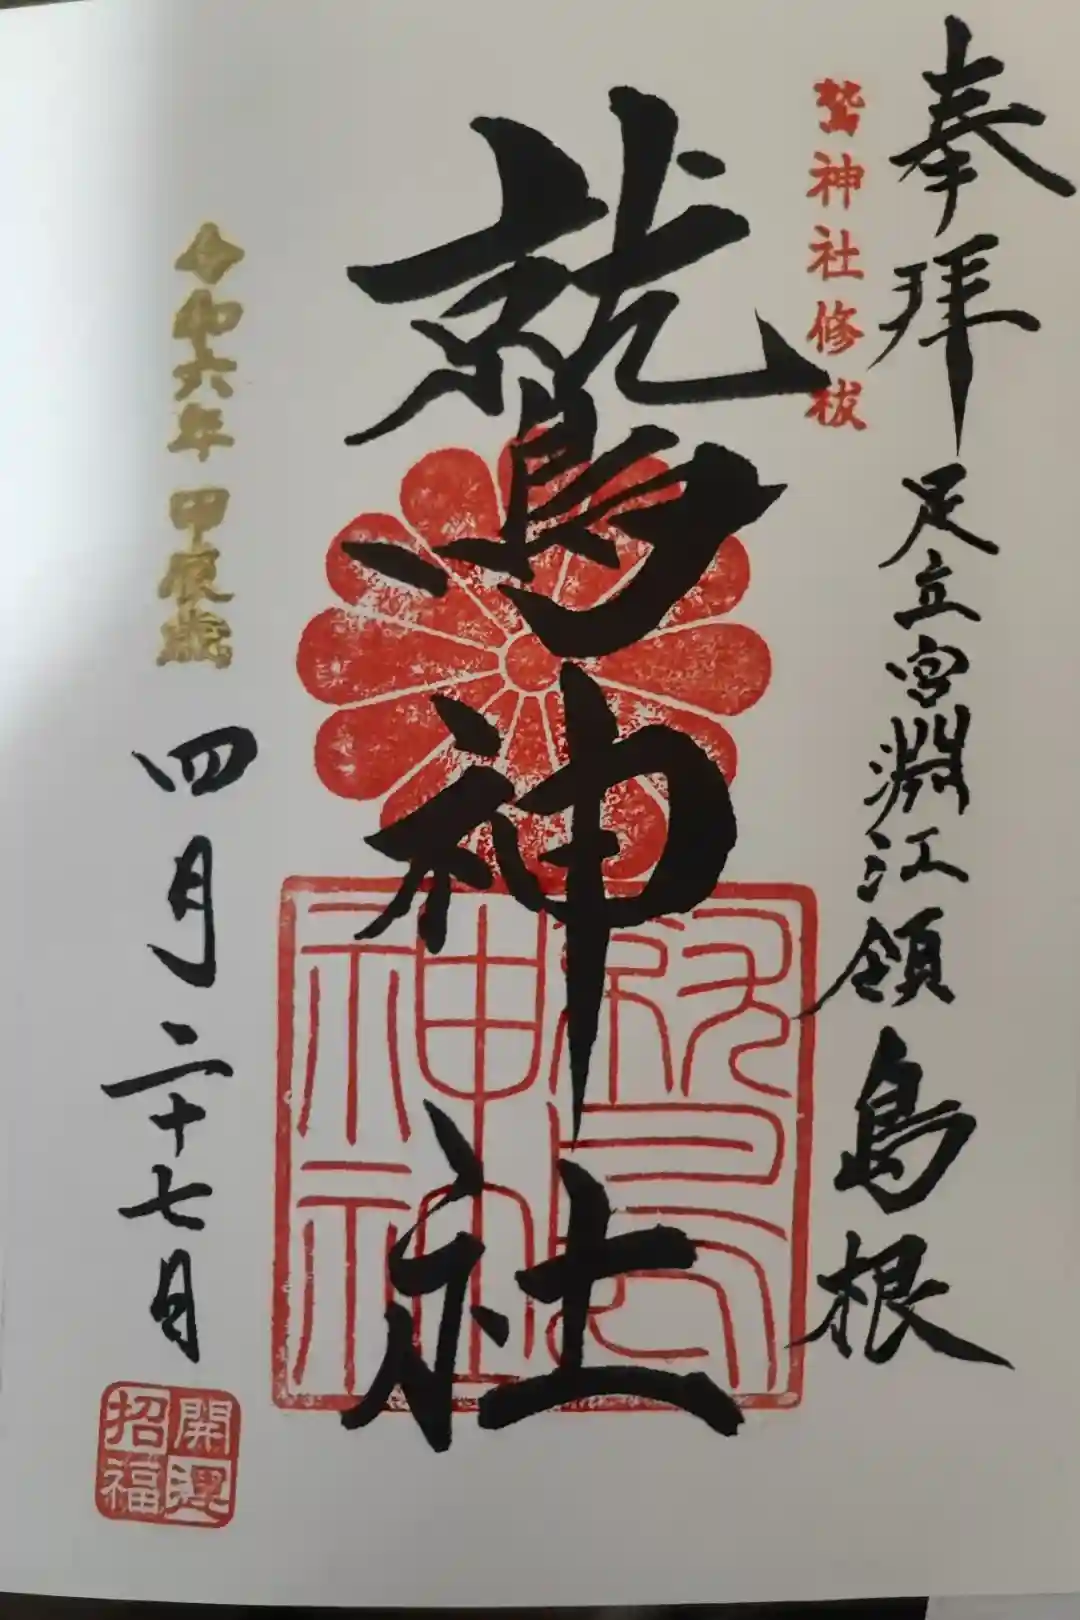 奉拝
足立宮淵江領島根
鷲神社修祓
鷲神社
令和六年 甲辰歳
四月二十七日
鷲神社
開運
招福